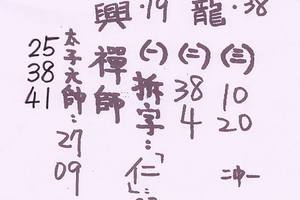 興·19
龍·38
25
38
41
太子元帥:27
09
禪師
(一)拆字:「仁」:
(二)38
4
(三)10
20
二中一